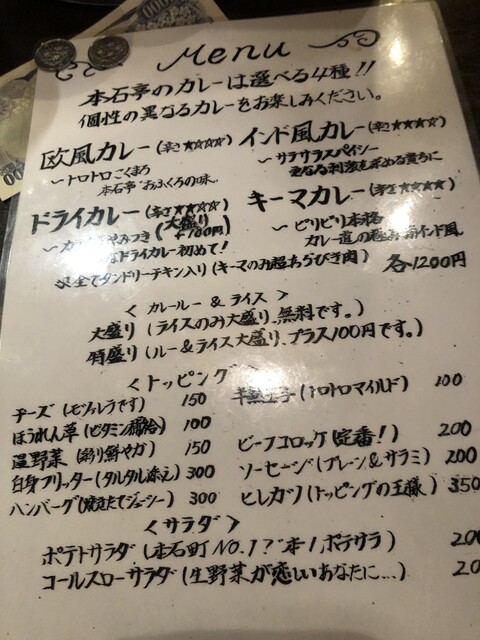 Menu
本石亭のカレーは選べる4種!!
個性の異なるカレーをお楽しみください。
欧風カレー(辛さ★☆☆☆☆)
~トロトロこくまろ
本石亭"おふくろの味"
インド風カレー
~サラサラスパイシー
更なる刺激を求める貴方に
ドライカレー(大盛り+100円)
なドライカレー初めて!
キーマカレー
~ピリピリ本格
カレー道の極み南インド風
全てタンドリーチキン入り(キーマのみ超あらびき肉)
各1200円
<カレールー&ライス>
大盛り(ライスのみ大盛り、無料です。)
特盛り(ルー&ライス大盛り、プラス100円です。)
<トッピング>
チーズ(モツァレラです) 150
ほうれん草(ビタミン補給) 100
温野菜(彩り鮮やか) 150
白身フリッター(タルタル添え) 300
ハンバーグ(焼きたてジューシー) 300
半熟玉子(トロトロマイルド) 100
ビーフコロッケ(定番!) 200
ソーセージ(プレーン&サラミ) 200
ヒレカツ(トッピングの王様) 350
<サラダ>
ポテトサラダ(本石町NO.1?"本1"ポテサラ)
コールスローサラダ(生野菜が恋しいあなたに…)